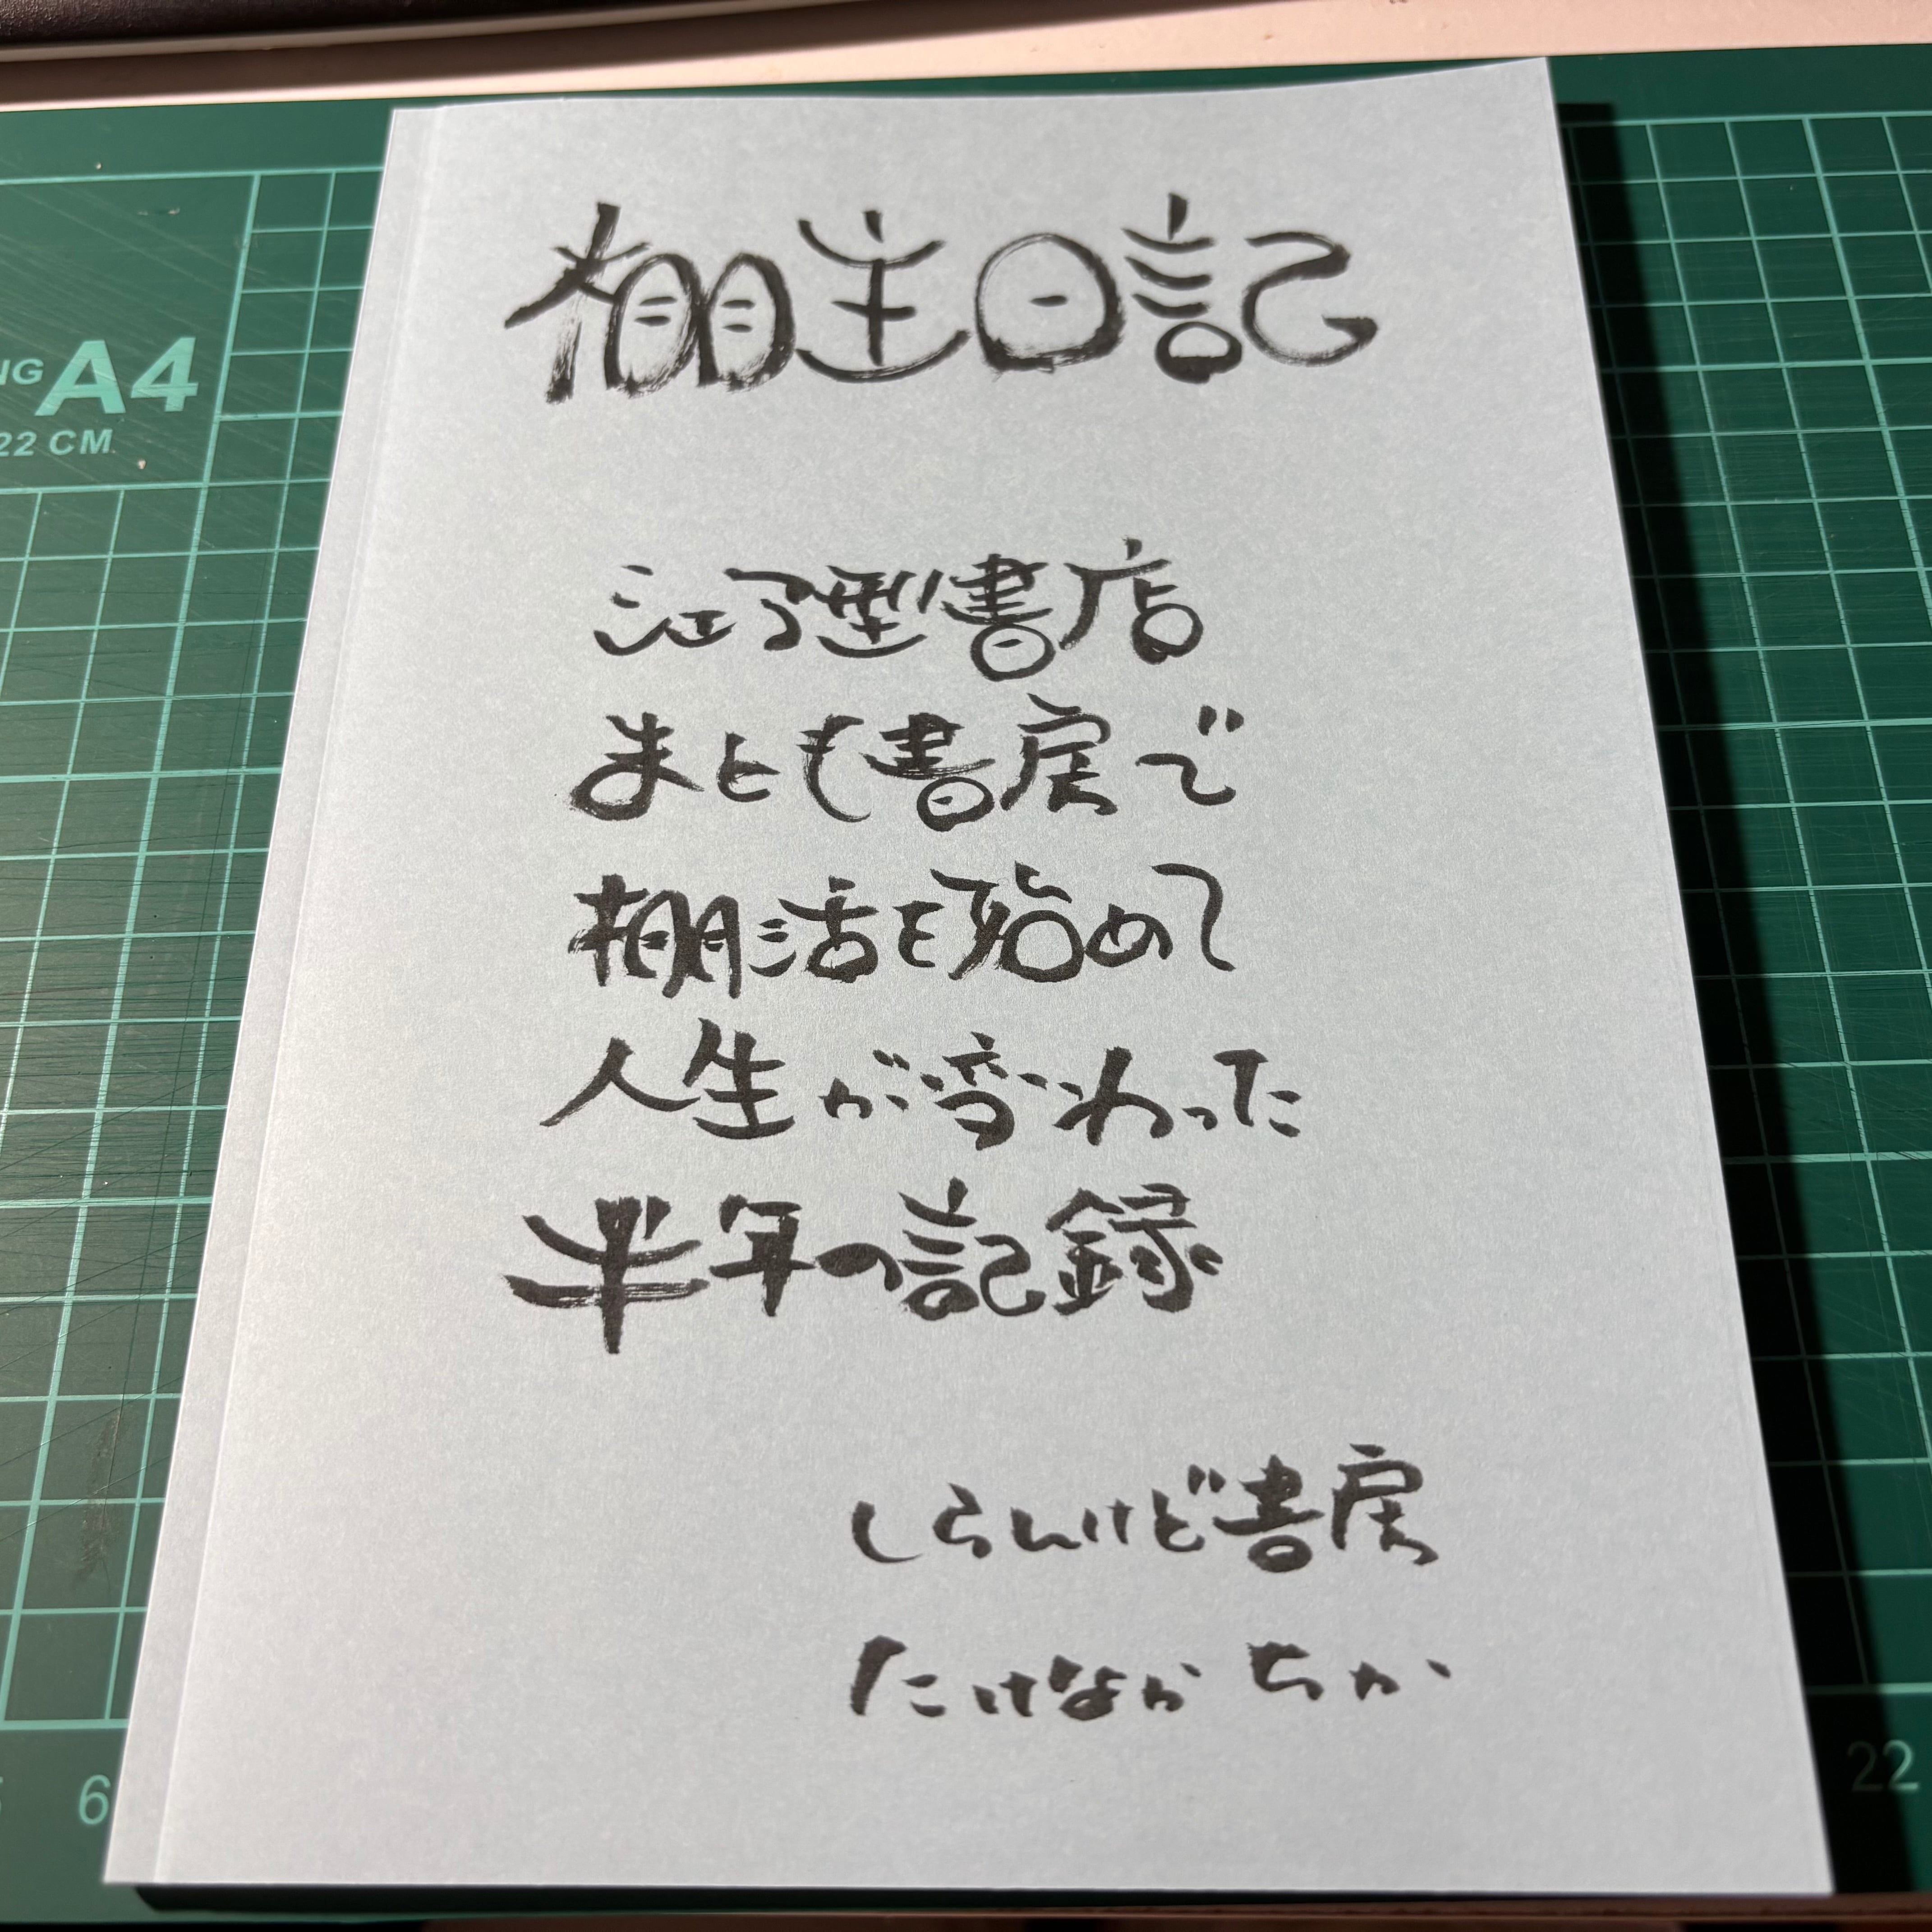 棚主日記
シェア型書店
まとも書房で
棚活を始めて
人生が変わった
半年の記録
しらんけど書房
たけなか ちか
NG A4
22 CM
6
22